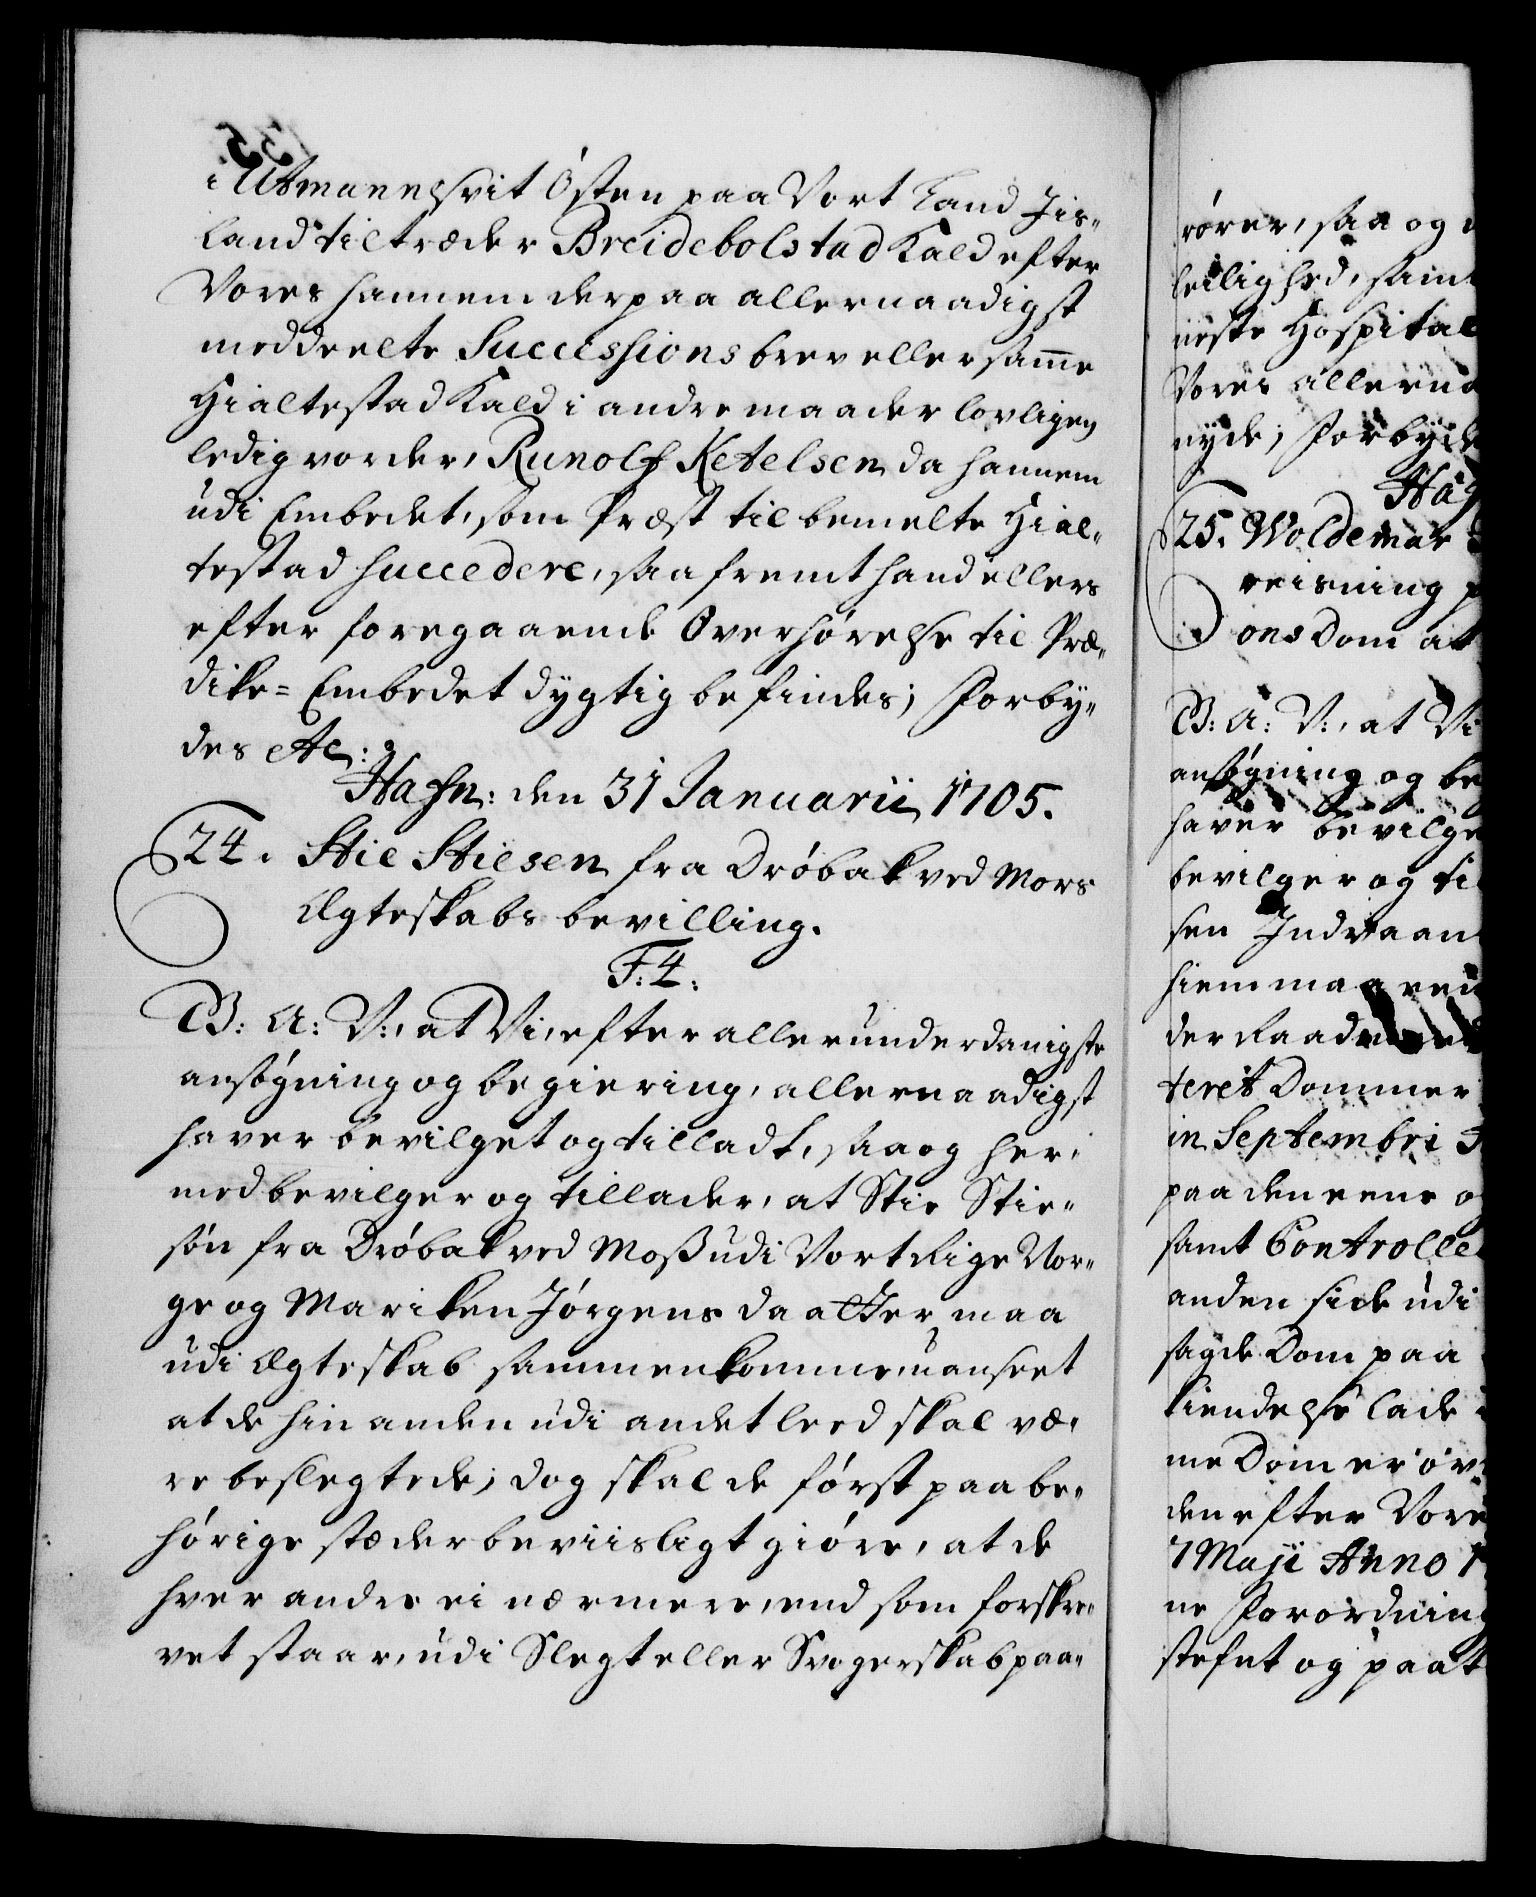 i Utmannssvit Østen paa Vort Land Jis-
land tiltræder Breidebolstad Kald efter
Vores hannem derpaa allernaadigst
meddeelte Successions brev eller sam̄e
Hialtestad Kald i andre maader lovligen
ledig vorder, Runolf Ketelsen da hannem
udi Embedet, som Præst til bemelte Hial-
testad succedere, saafremt hand ellers
efter foregaaende Overhørelse til Præ-
dike-Embedet dygtig befindes; Forby-
des etc:
Hafn: den 31 Januarii 1705.
24. Stie Stiesen fra Drøbak ved Mors
Ægteskabs bevilling.
F: 4:
G: A: V:, at Vi, efter allerunderdanigste
ansøgning og begiering, allernaadigst
haver bevilget og tilladt, saa og her-
med bevilger og tillader, at Stie Stie-
søn fra Drøbak ved Moß udi Vort Rige Nor-
ge og Mariken Jørgens daatter maa
udi Ægteskab sammenkomme, uanseet
at de hinanden udi andet leed skal væ-
re beslegtede; dog skal de først paa be-
hørige stæder beviisligt giøre, at de
hver andre ei nærmere, end som forskre-
vet staar, udi Slegt eller Svogerskab paa-
rører, saa og
leilighed, samt
neste Hospital
Vores allerna
nyde; Forbyde
Haf
25. Woldemar
reisning
ons Dom at
G: A: V:, at Vi
ansøgning og be
haver bevilge
bevilger og til
sen Indvaan
hiem maa
der Raad
teret Dommer
in Septembri
paa den eene
samt Controlle
anden side udi
sagde Dom paa
kiendelse lade
me Dom er
den efter Vore
7 Maji Anno 1
ne Forordning
stefnt og paat